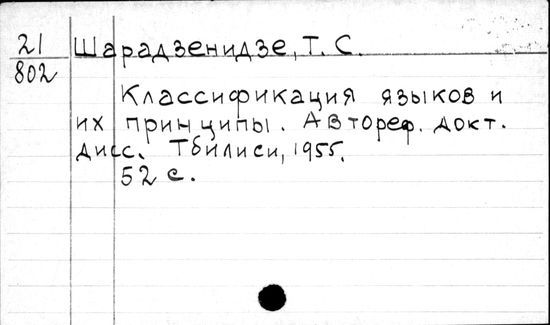 21
802
Шарадзенидзе, Т. С.
Классификация языков и
их принципы. Автореф. докт.
дисс. Тбилиси, 1955.
52 с.